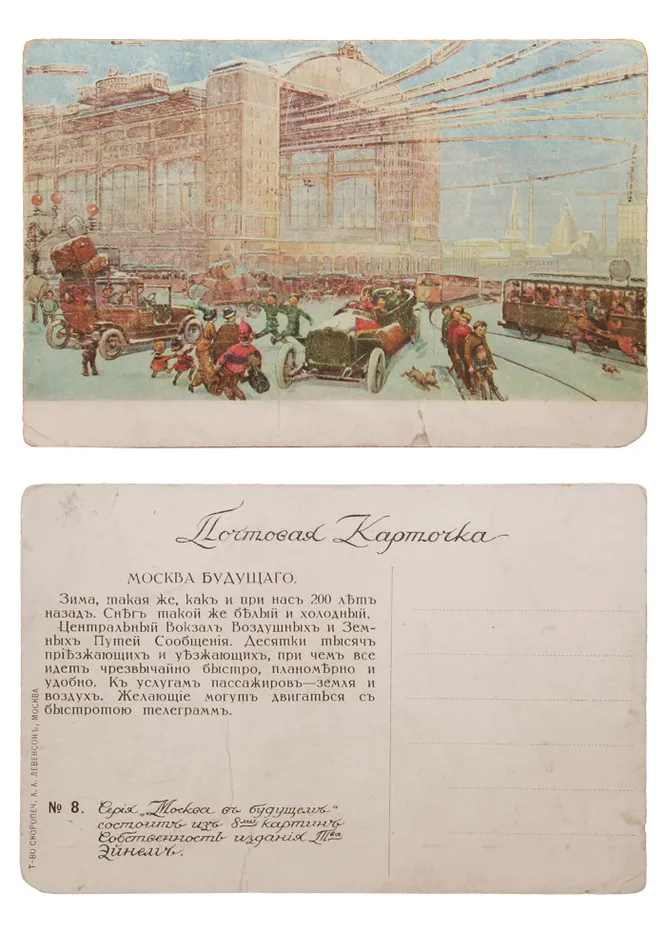 Почтовая Карточка
МОСКВА БУДУЩАГО.
Зима, такая же, какъ и при насъ 200 лѣтъ
назадъ. Снѣгъ такой же бѣлый и холодный.
Центральный Вокзалъ Воздушныхъ и Зем-
ныхъ Путей Сообщенія. Десятки тысячъ
пріѣзжающихъ и уѣзжающихъ, при чемъ все
идетъ чрезвычайно быстро, планомѣрно и
удобно. Къ услугамъ пассажировъ—земля и
воздухъ. Желающіе могутъ двигаться съ
быстротою телеграммъ.
№ 8. Серія „Москва въ будущемъ“
состоитъ изъ 8ми картинъ
Собственность изданія Тва
Эйнемъ.
Т-ВО СКОРОПЕЧ. А. А. ЛЕВЕНСОНЪ, МОСКВА